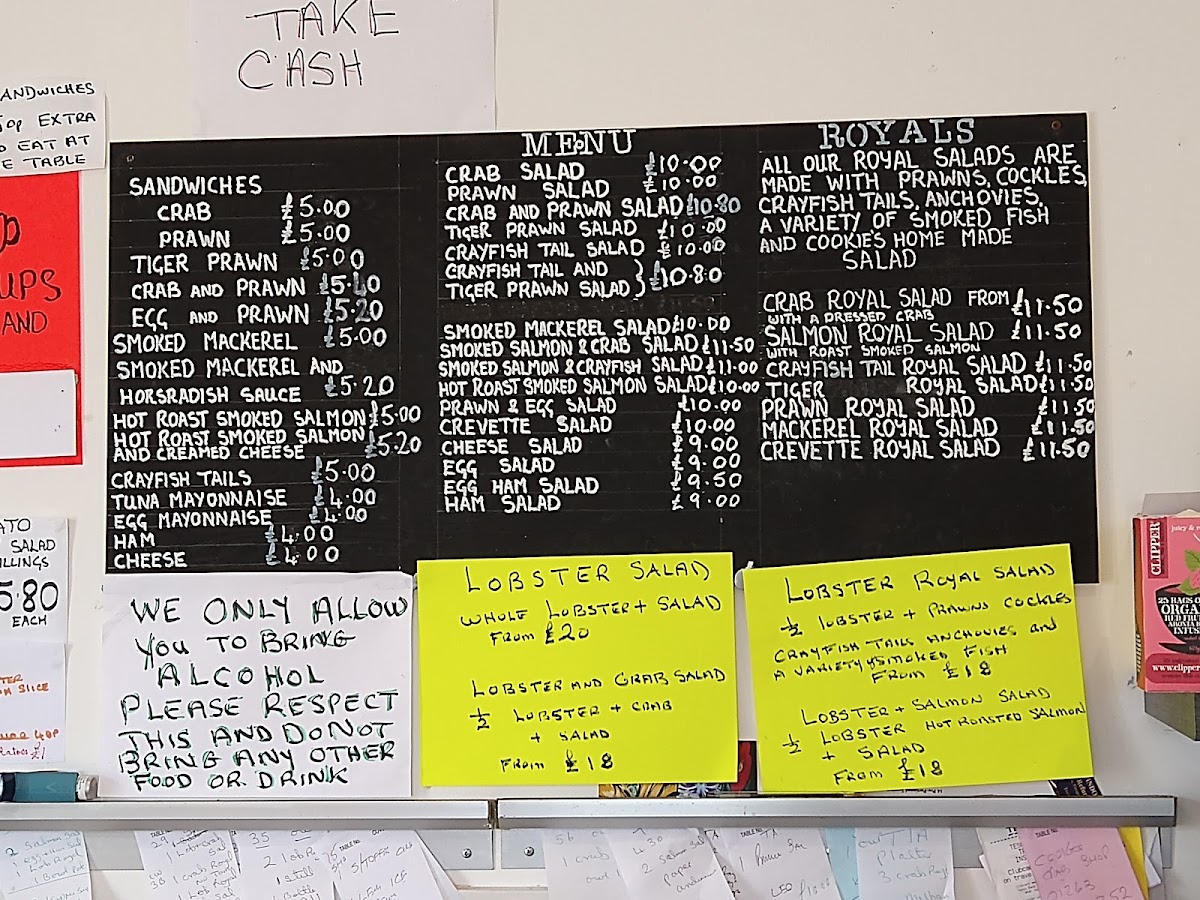 TAKE
CASH
ANDWICHES
EXTRA
EAT AT
TABLE
UPS
AND
SALAD
5.80
EACH
SLICE
40P
£1
SANDWICHES
CRAB £5.00
PRAWN £5.00
TIGER PRAWN £5.00
CRAB AND PRAWN £5.40
EGG AND PRAWN £5.20
SMOKED MACKEREL £5.00
SMOKED MACKEREL AND
HORSRADISH SAUCE £5.20
HOT ROAST SMOKED SALMON £5.00
HOT ROAST SMOKED SALMON
AND CREAMED CHEESE £5.20
CRAYFISH TAILS £5.00
TUNA MAYONNAISE £4.00
EGG MAYONNAISE £4.00
HAM £4.00
CHEESE £4.00
MENU
CRAB SALAD £10.00
PRAWN SALAD £10.00
CRAB AND PRAWN SALAD £10.80
TIGER PRAWN SALAD £10.00
CRAYFISH TAIL SALAD £10.00
CRAYFISH TAIL AND
TIGER PRAWN SALAD } £10.80
SMOKED MACKEREL SALAD £10.00
SMOKED SALMON & CRAB SALAD £11.50
SMOKED SALMON & CRAYFISH SALAD £11.00
HOT ROAST SMOKED SALMON SALAD £10.00
PRAWN & EGG SALAD £10.00
CREVETTE SALAD £10.00
CHEESE SALAD £9.00
EGG SALAD £9.00
EGG HAM SALAD £9.50
HAM SALAD £9.00
ROYALS
ALL OUR ROYAL SALADS ARE
MADE WITH PRAWNS, COCKLES,
CRAYFISH TAILS, ANCHOVIES,
A VARIETY OF SMOKED FISH
AND COOKIES HOME MADE
SALAD
CRAB ROYAL SALAD FROM £11.50
WITH A DRESSED CRAB
SALMON ROYAL SALAD £11.50
WITH ROAST SMOKED SALMON
CRAYFISH TAIL ROYAL SALAD £11.50
TIGER ROYAL SALAD £11.50
PRAWN ROYAL SALAD £11.50
MACKEREL ROYAL SALAD £11.50
CREVETTE ROYAL SALAD £11.50
WE ONLY ALLOW
YOU TO BRING
ALCOHOL
PLEASE RESPECT
THIS AND DO NOT
BRING ANY OTHER
FOOD OR DRINK
LOBSTER SALAD
WHOLE LOBSTER + SALAD
FROM £20
LOBSTER AND CRAB SALAD
½ LOBSTER + CRAB
+ SALAD
FROM £18
LOBSTER ROYAL SALAD
½ LOBSTER + PRAWNS COCKLES
CRAYFISH TAILS ANCHOVIES and
A VARIETY of SMOKED FISH
FROM £18
LOBSTER + SALMON SALAD
½ LOBSTER HOT ROASTED SALMON
+ SALAD
FROM £18
CLIPPER
25 BAGS
ORGA
RED FRU
INFUS
www.clipper